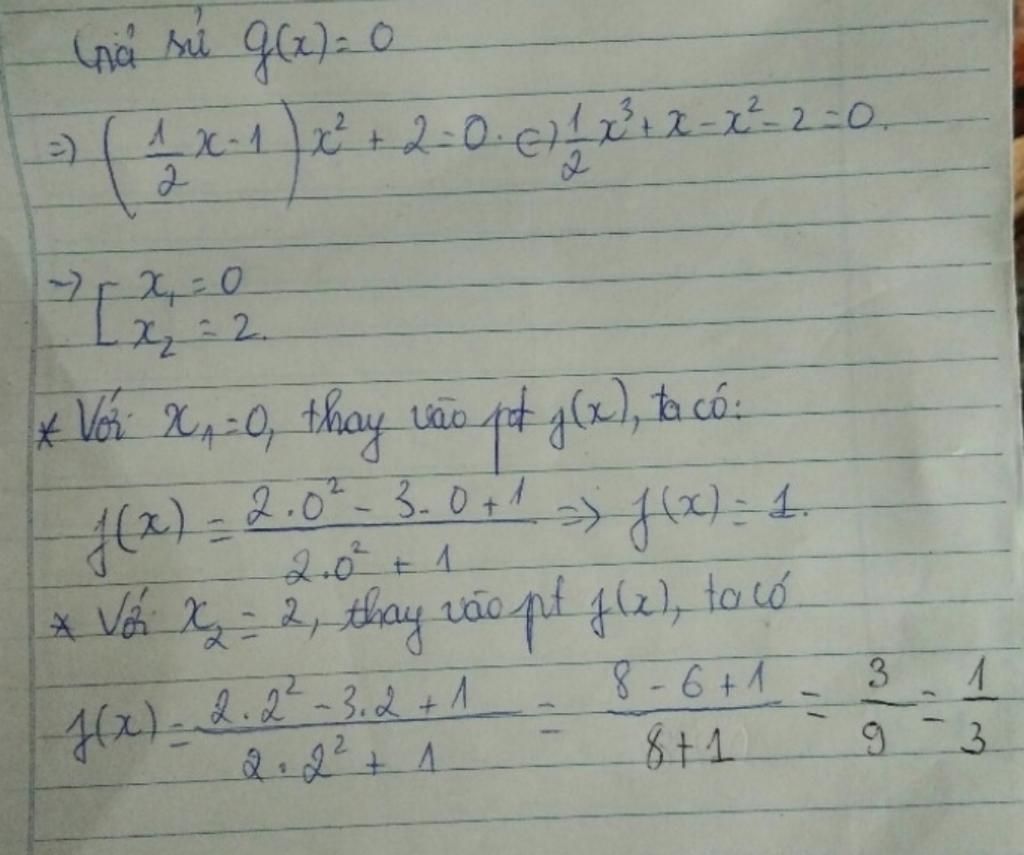 Giả sử g(x) = 0
=> (1/2 x - 1) x² + 2 = 0. <=> 1/2 x³ + x - x² - 2 = 0.
-> [ x₁ = 0
x₂ = 2.
* Với x₁ = 0, thay vào pt f(x), ta có:
f(x) = (2.0² - 3.0 + 1)/(2.0² + 1) => f(x) = 1.
* Với x₂ = 2, thay vào pt f(x), ta có
f(x) = (2.2² - 3.2 + 1)/(2.2² + 1) = (8 - 6 + 1)/(8 + 1) = 3/9 = 1/3